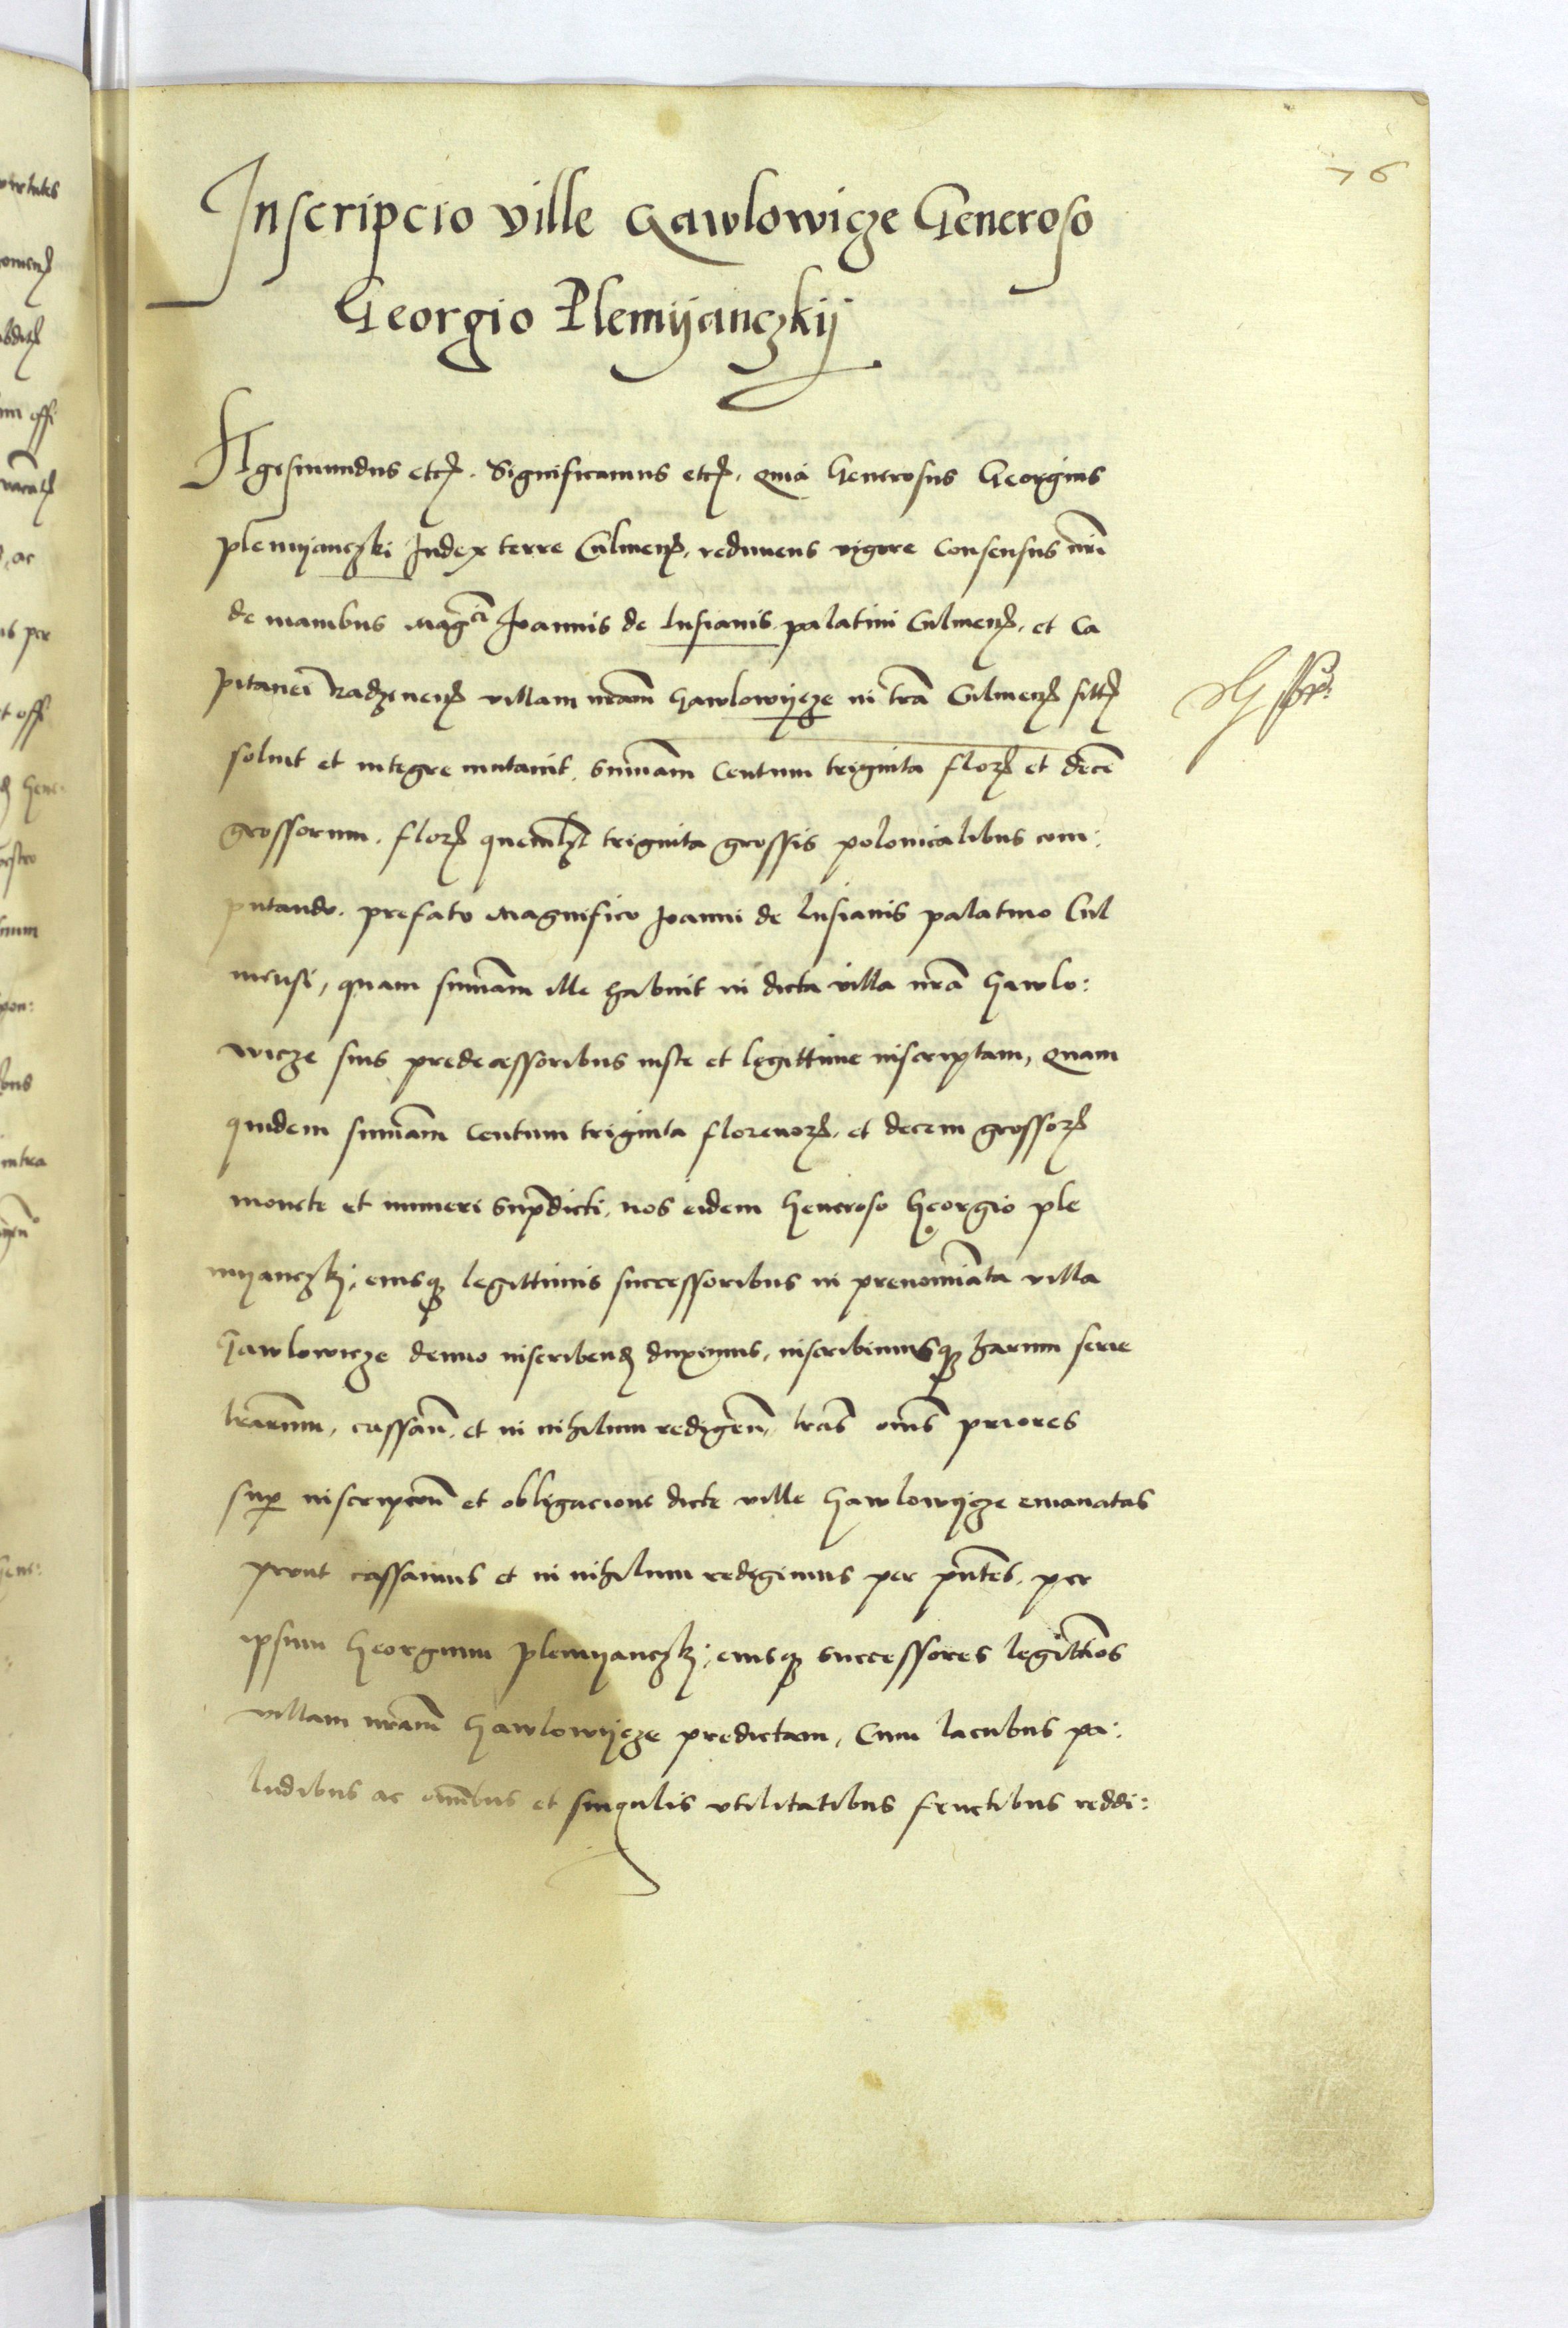 76
Inscripcio ville Gawlowicze Generoso
Georgio Plemijanczkij
Sigismundus etc. Significamus etc. quia Generosus Georgius
plemijanczki Judex terre Culmenß. redimens vigore consensus nri
de manibus magci Joannis de lusianis palatini Culmenß. et Ca
pitanei Radzinenß villam nram Gawlowijcze in tra Culmenß sitt
soluit et integre numerauit summam centum triginta floꝝ et dece
grossorum. floꝝ quemlꝫt triginta grossis polonicalibus com:
putando. prefato Magnifico Joanni de lusianis palatino Cul
mensi, quam summam ille habuit in dicta villa nra Gawlo:
wicze suis predecessoribus iuste et legittime inscriptam, quam
quidem summam centum triginta florenoꝝ. et decem grossoꝝ
monete et numeri supradicti. nos eidem Generoso Georgio ple
mijanczkj, eiusqꝫ legittimis successoribus in prenominata villa
Gawlowicze denuo inscribend duximus, inscribimusqꝫ harum serie
lrarum, cassan. et in nihilum redigen. lras oms priores
sup inscripcon et obligacione dicte ville Gawlowijcze emanatas
prout cassamus et in nihilum redigimus per pntes. per
ipsum Georgium plemijanczkj, eiusqꝫ successores legittimos
villam nram Gawlowijcze predictam, Cum lacubus pa:
ludibus ac omnibus et singulis vtilitatibus fructibus reddi: